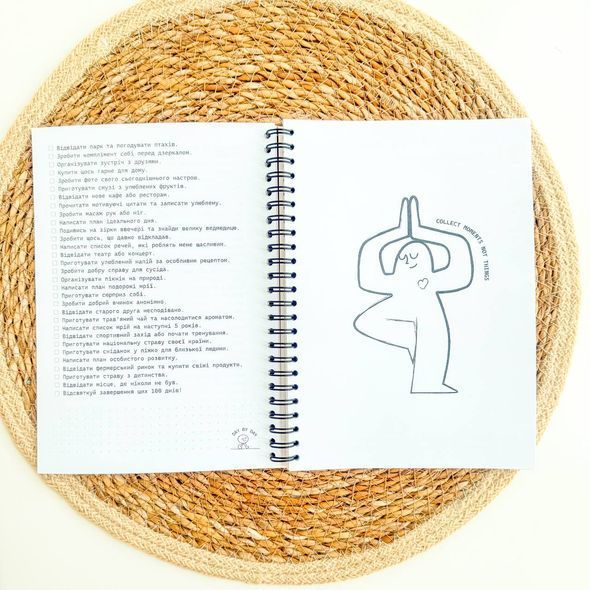 Відвідати парк та погодувати птахів.
Зробити комплімент собі перед дзеркалом.
Організувати зустріч з друзями.
Купити щось гарне для дому.
Зробити фото свого сьогоднішнього настрою.
Приготувати смузі з улюблених фруктів.
Відвідати нове кафе або ресторан.
Прочитати мотивуючі цитати та записати улюблену.
Зробити масаж рук або ніг.
Написати план ідеального дня.
Подивись на зірки ввечері та знайди велику ведмедицю.
Зробити щось, що давно відкладав.
Написати список речей, які роблять мене щасливим.
Відвідати театр або концерт.
Приготувати улюблений напій за особливим рецептом.
Зробити добру справу для сусіда.
Організувати пікнік на природі.
Написати план подорожі мрії.
Приготувати сюрприз собі.
Зробити добрий вчинок анонімно.
Відвідати старого друга несподівано.
Приготувати трав'яний чай та насолодитися ароматом.
Написати список мрій на наступні 5 років.
Відвідати спортивний захід або почати тренування.
Приготувати національну страву своєї країни.
Приготувати сніданок у ліжко для близької людини.
Написати план особистого розвитку.
Відвідати фермерський ринок та купити свіжі продукти.
Приготувати страву з дитинства.
Відвідати місце, де ніколи не був.
Відсвяткуй завершення цих 100 днів!
DAY BY DAY
COLLECT MOMENTS NOT THINGS